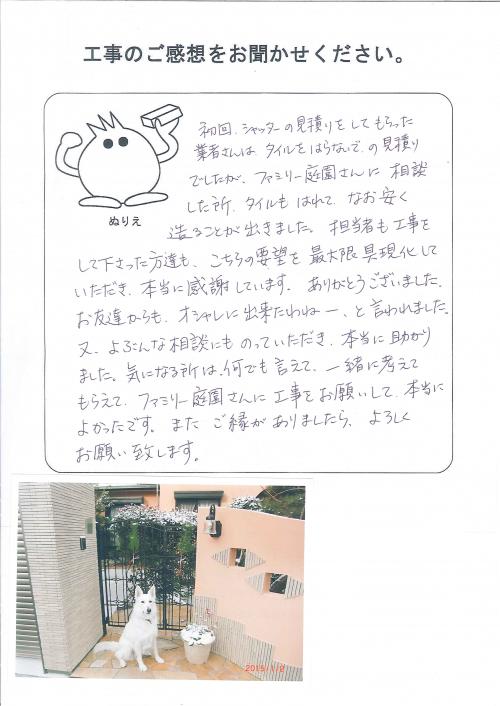 工事のご感想をお聞かせください。
ぬりえ
初回、シャッターの見積りをしてもらった
業者さんは、タイルをはらないで、の見積り
でしたが、ファミリー庭園さんに相談
した所、タイルもはれて、なお安く
造ることが出きました。担当者も工事を
して下さった方達も、こちらの要望を最大限具現化して
いただき、本当に感謝しています。ありがとうございました。
お友達からも、オシャレに出来たわねー、と言われました。
又、よぶんな相談にものっていただき、本当に助かり
ました。気になる所は、何でも言えて、一緒に考えて
もらえて、ファミリー庭園さんに工事をお願いして、本当に
よかったです。また ご縁がありましたら、よろしく
お願い致します。
2015/1/2